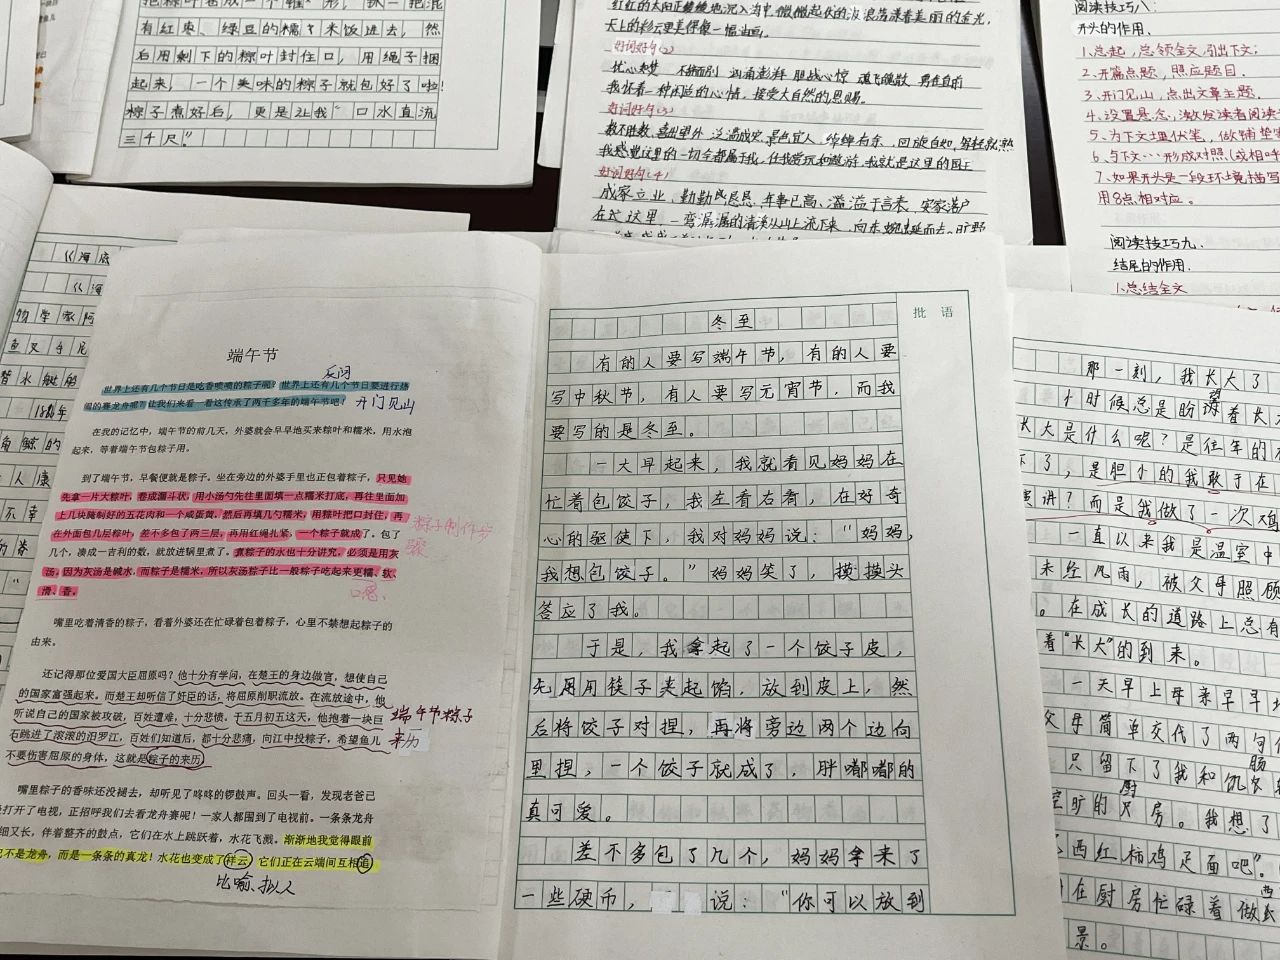 有红枣、绿豆的糯米饭进去，然
后用剩下的粽叶封住口，用绳子捆
起来，一个美味的粽子就包好了啦！
粽子煮好后，更是让我“口水直流
三千尺。”
天上的彩云更美得像一幅油画。
好词好句(2)
我怀着一种闲适的心情，接受大自然的恩赐。
好词好句(3)
我感觉这里的一切全都属于我，在我尽玩和遨游，我就是这里的国王
好词好句(4)
成家立业、勤勤恳恳、年事已高、溢溢于言表、安家落户
在这里，一弯潺潺的清溪从山上流下来，向东蜿蜒而去。旷野
阅读技巧八：
开头的作用.
1、总起，总领全文，引出下文；
2、开篇点题，照应题目.
3、开门见山，点出文章主题.
4、设置悬念，激发读者阅读
5、为下文埋伏笔，做铺垫
6、与下文…形成对照(或相呼
7、如果开头是一段环境描写
用8点相对应。
阅读技巧九、
结尾的作用.
1、总结全文
《海底
《海
物学家阿
鱼叉手尼
替水艇船
角鲸的
人康
不幸
端午节
反问
世界上还有几个节日是吃香喷喷的粽子呢？世界上还有几个节日要进行热
闹的赛龙舟呢？让我们来看一看这传承了两千多年的端午节吧！
开门见山
在我的记忆中，端午节的前几天，外婆就会早早地买来粽叶和糯米，用水泡
起来，等着端午节包粽子用。
到了端午节，早餐便就是粽子。坐在旁边的外婆手里也正包着粽子，只见她
先拿一片大粽叶，卷成漏斗状，用小汤勺先往里面填一点糯米打底，再往里面加
上几块腌制好的五花肉和一个咸蛋黄，然后再填几勺糯米，用粽叶把口封住，再
在外面包几层粽叶，差不多包了两三层，再用红绳扎紧，一个粽子就成了。包了
几个，凑成一吉利的数，就放进锅里煮了。煮粽子的水也十分讲究，必须是用灰
汤，因为灰汤是碱水，而粽子是糯米，所以灰汤粽子比一般粽子吃起来更糯、软、
滑、香。
粽子制作步
骤
口感、
嘴里吃着清香的粽子，看着外婆还在忙碌着包着粽子，心里不禁想起粽子的
由来。
还记得那位爱国大臣屈原吗？他十分有学问，在楚王的身边做官，想使自己
的国家富强起来。而楚王却听信了奸臣的话，将屈原削职流放。在流放途中，他
听说自己的国家被攻破，百姓遭难，十分悲愤，于五月初五这天，他抱着一块巨
石跳进了滚滚的汨罗江，百姓们知道后，都十分悲痛，向江中投粽子，希望鱼儿
不要伤害屈原的身体，这就是粽子的来历
端午节粽子
来历
嘴里粽子的香味还没褪去，却听见了咚咚的锣鼓声。回头一看，发现老爸已
打开了电视，正招呼我们去看龙舟赛呢！一家人都围到了电视前。一条条龙舟
细又长，伴着整齐的鼓点，它们在水上跳跃着，水花飞溅。渐渐地我觉得眼前
不是龙舟，而是一条条的真龙！水花也变成了祥云，它们正在云端间互相追
比喻、拟人
批语
冬至
有的人要写端午节，有的人要
写中秋节，有人要写元宵节，而我
要写的是冬至。
一大早起来，我就看见妈妈在
忙着包饺子，我左看右看，在好奇
心的驱使下，我对妈妈说：“妈妈，
我想包饺子。”妈妈笑了，摸摸头
答应了我。
于是，我拿起了一个饺子皮，
先用用筷子夹起馅，放到皮上，然
后将饺子对捏，再将旁边两个边向
里捏，一个饺子就成了，胖嘟嘟的
真可爱。
差不多包了几个，妈妈拿来了
一些硬币，说：“你可以放到
那一刻，我长大了
小时候总是盼望着长
长大是什么呢？是往年的
了，是胆小的我敢于在
演讲？而是我做了一次鸡
一直以来我是温室中
未经风雨，被父母照顾
。在成长的道路上总有
着“长大”的到来。
一天早上母亲早早
父母简单交代了两句
只留下了我和饥
肠
空旷的厨房。我想了
西红柿鸡蛋面吧”。
在厨房忙碌着做
景。